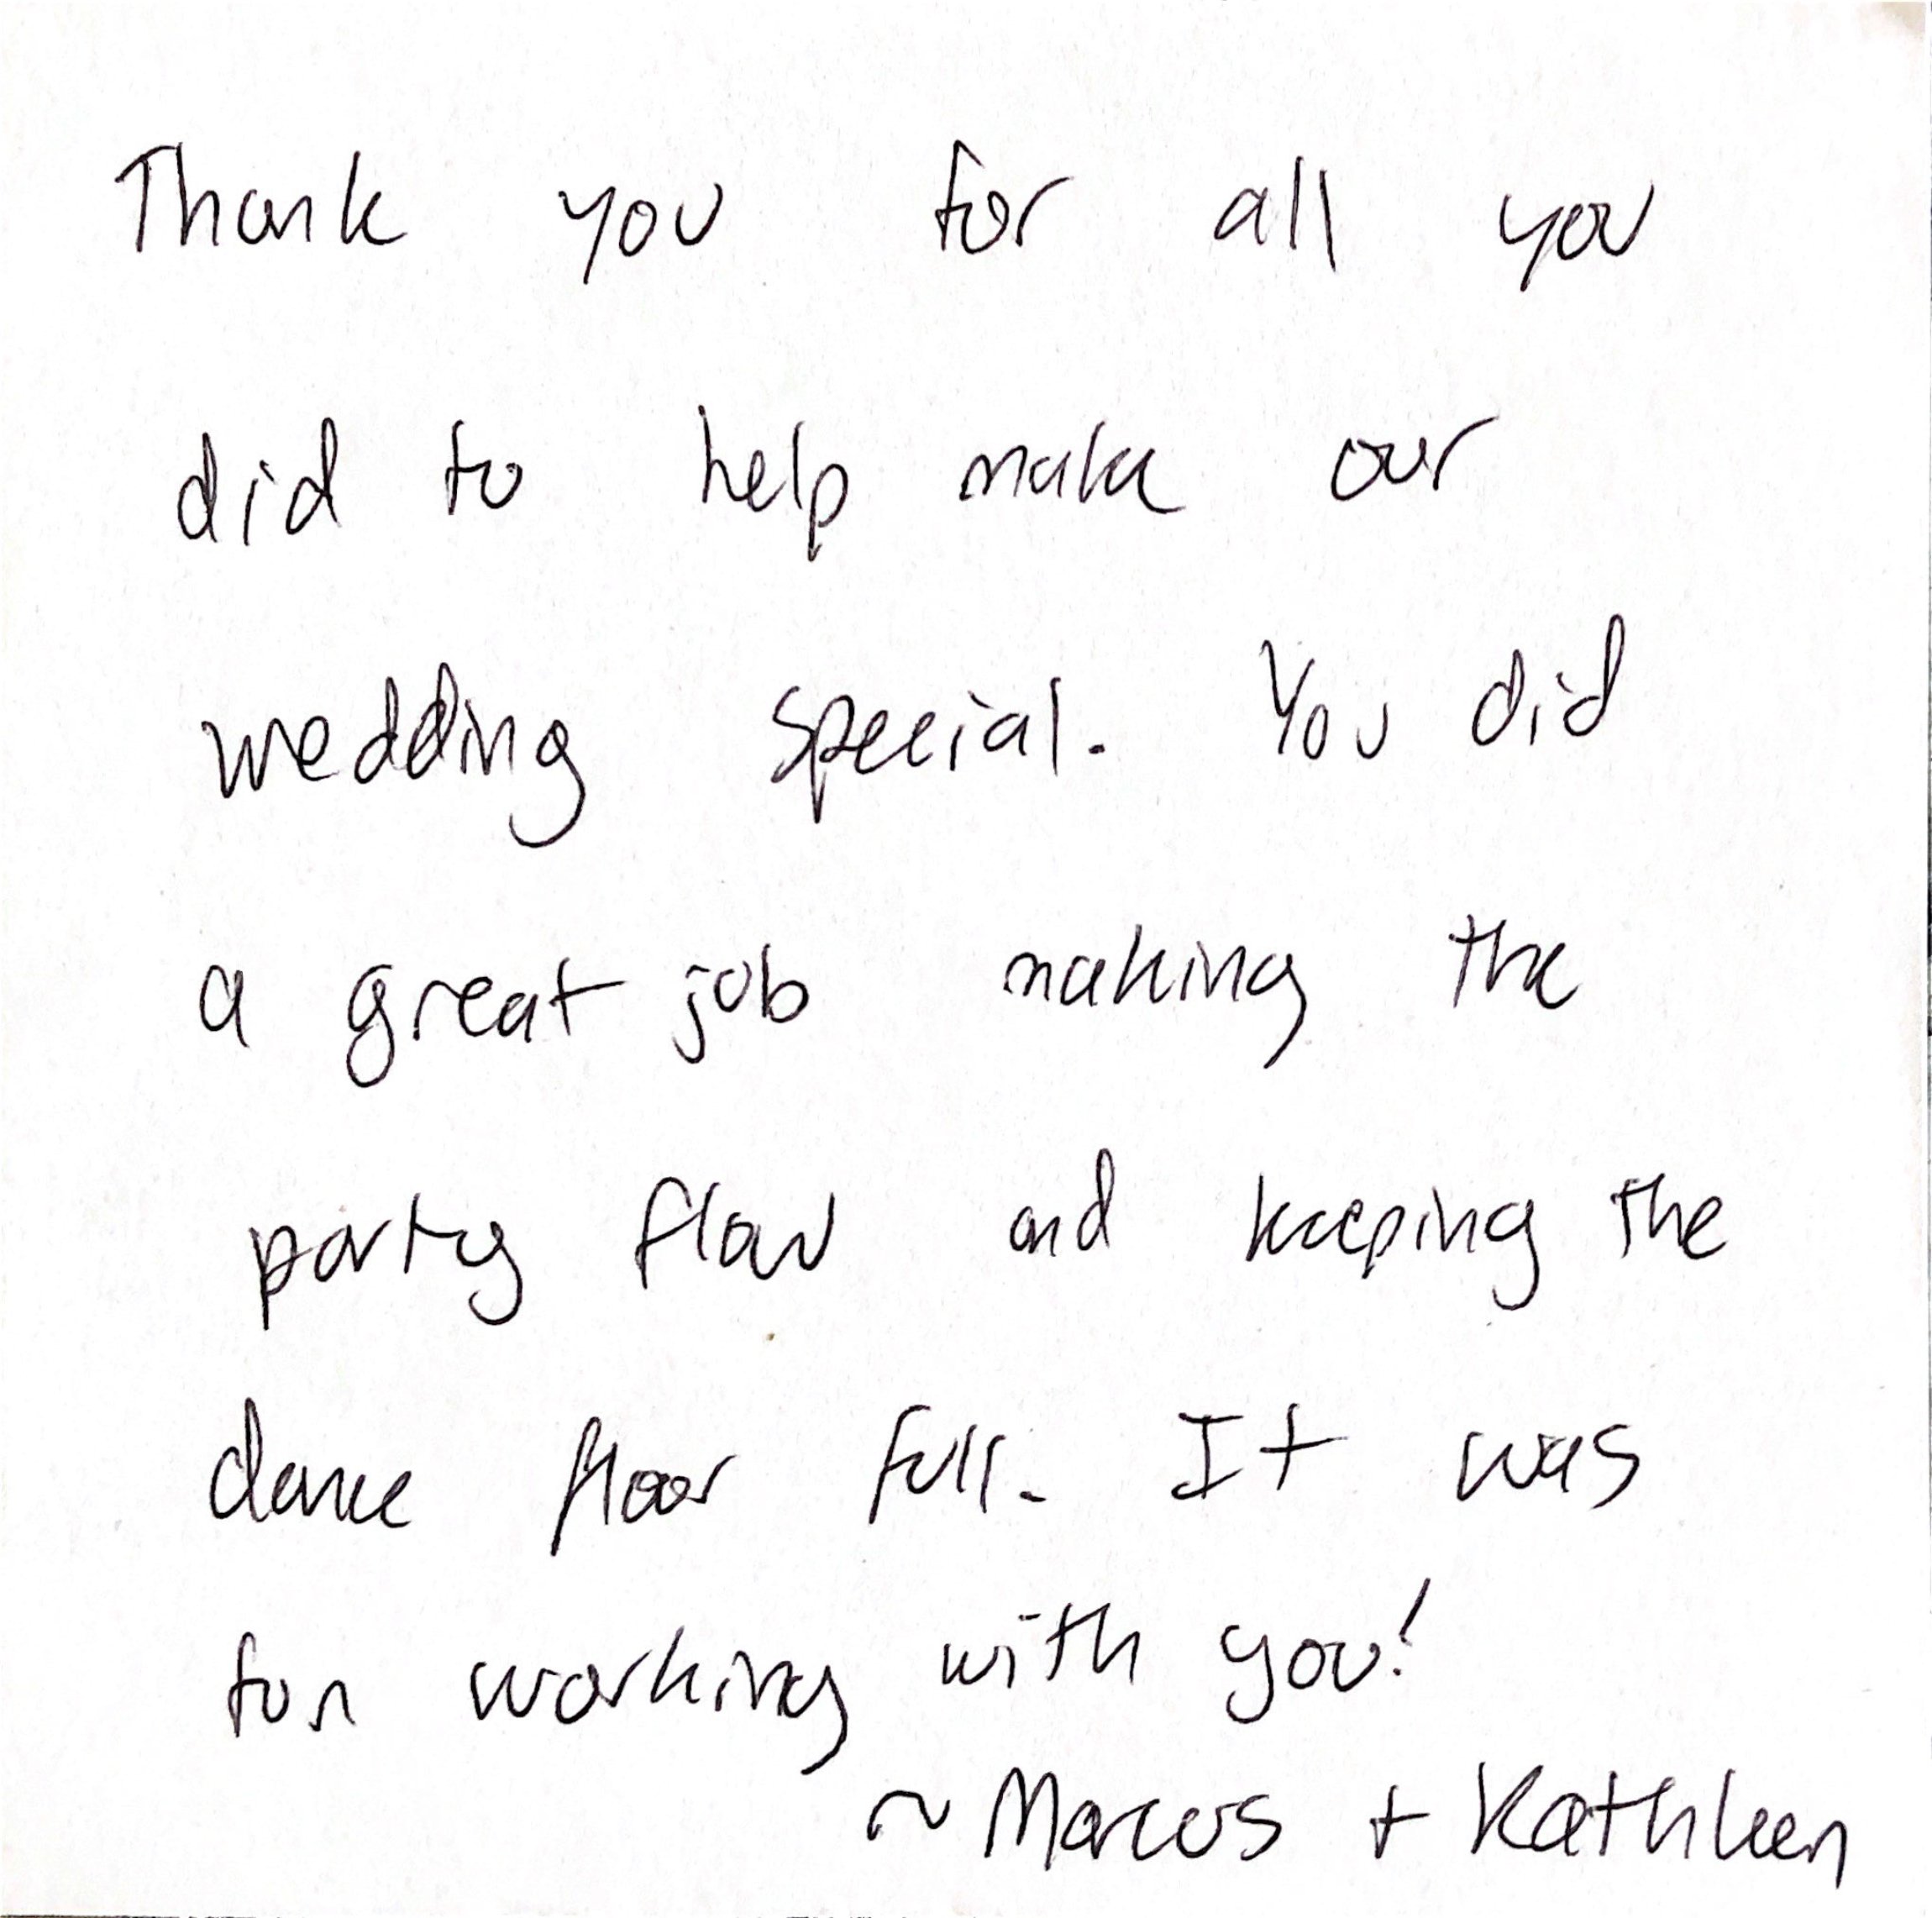 Thank you for all you
did to help make our
wedding special. You did
a great job making the
party flow and keeping the
dance floor full. It was
fun working with you!
~ Marcus + Kathleen